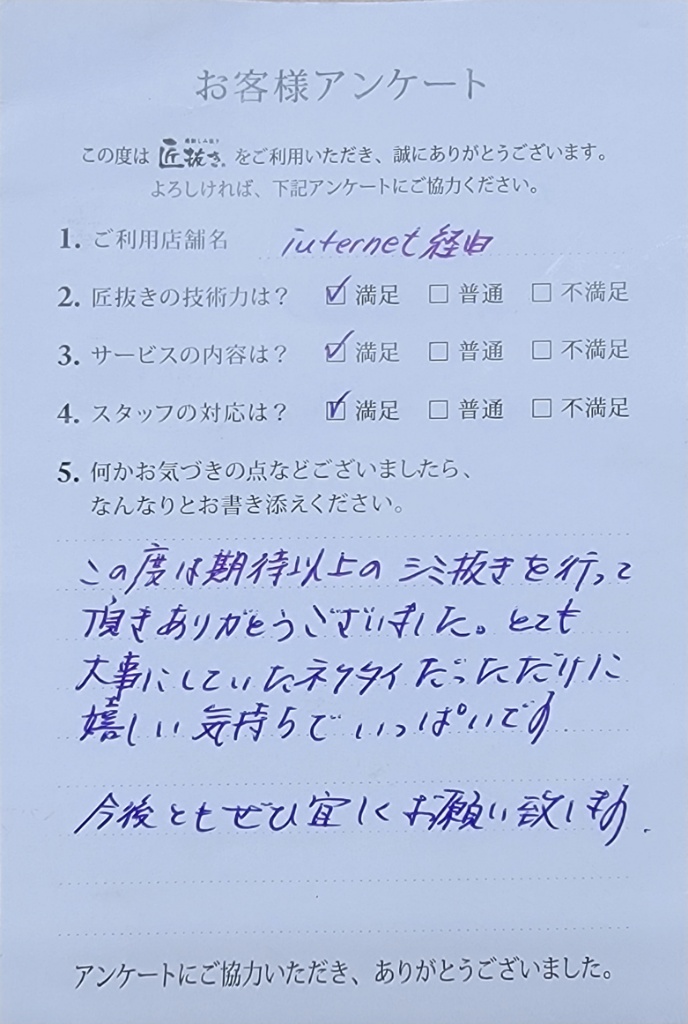 お客様アンケート
この度は 匠抜き をご利用いただき、誠にありがとうございます。
よろしければ、下記アンケートにご協力ください。
1. ご利用店舗名 internet経由
2. 匠抜きの技術力は? ☑ 満足 □ 普通 □ 不満足
3. サービスの内容は? ☑ 満足 □ 普通 □ 不満足
4. スタッフの対応は? ☑ 満足 □ 普通 □ 不満足
5. 何かお気づきの点などございましたら、
なんなりとお書き添えください。
この度は期待以上のシミ抜きを行って
頂きありがとうございました。とても
大事にしていたネクタイだっただけに
嬉しい気持ちでいっぱいです
今後ともぜひ宜しくお願い致します.
アンケートにご協力いただき、ありがとうございました。